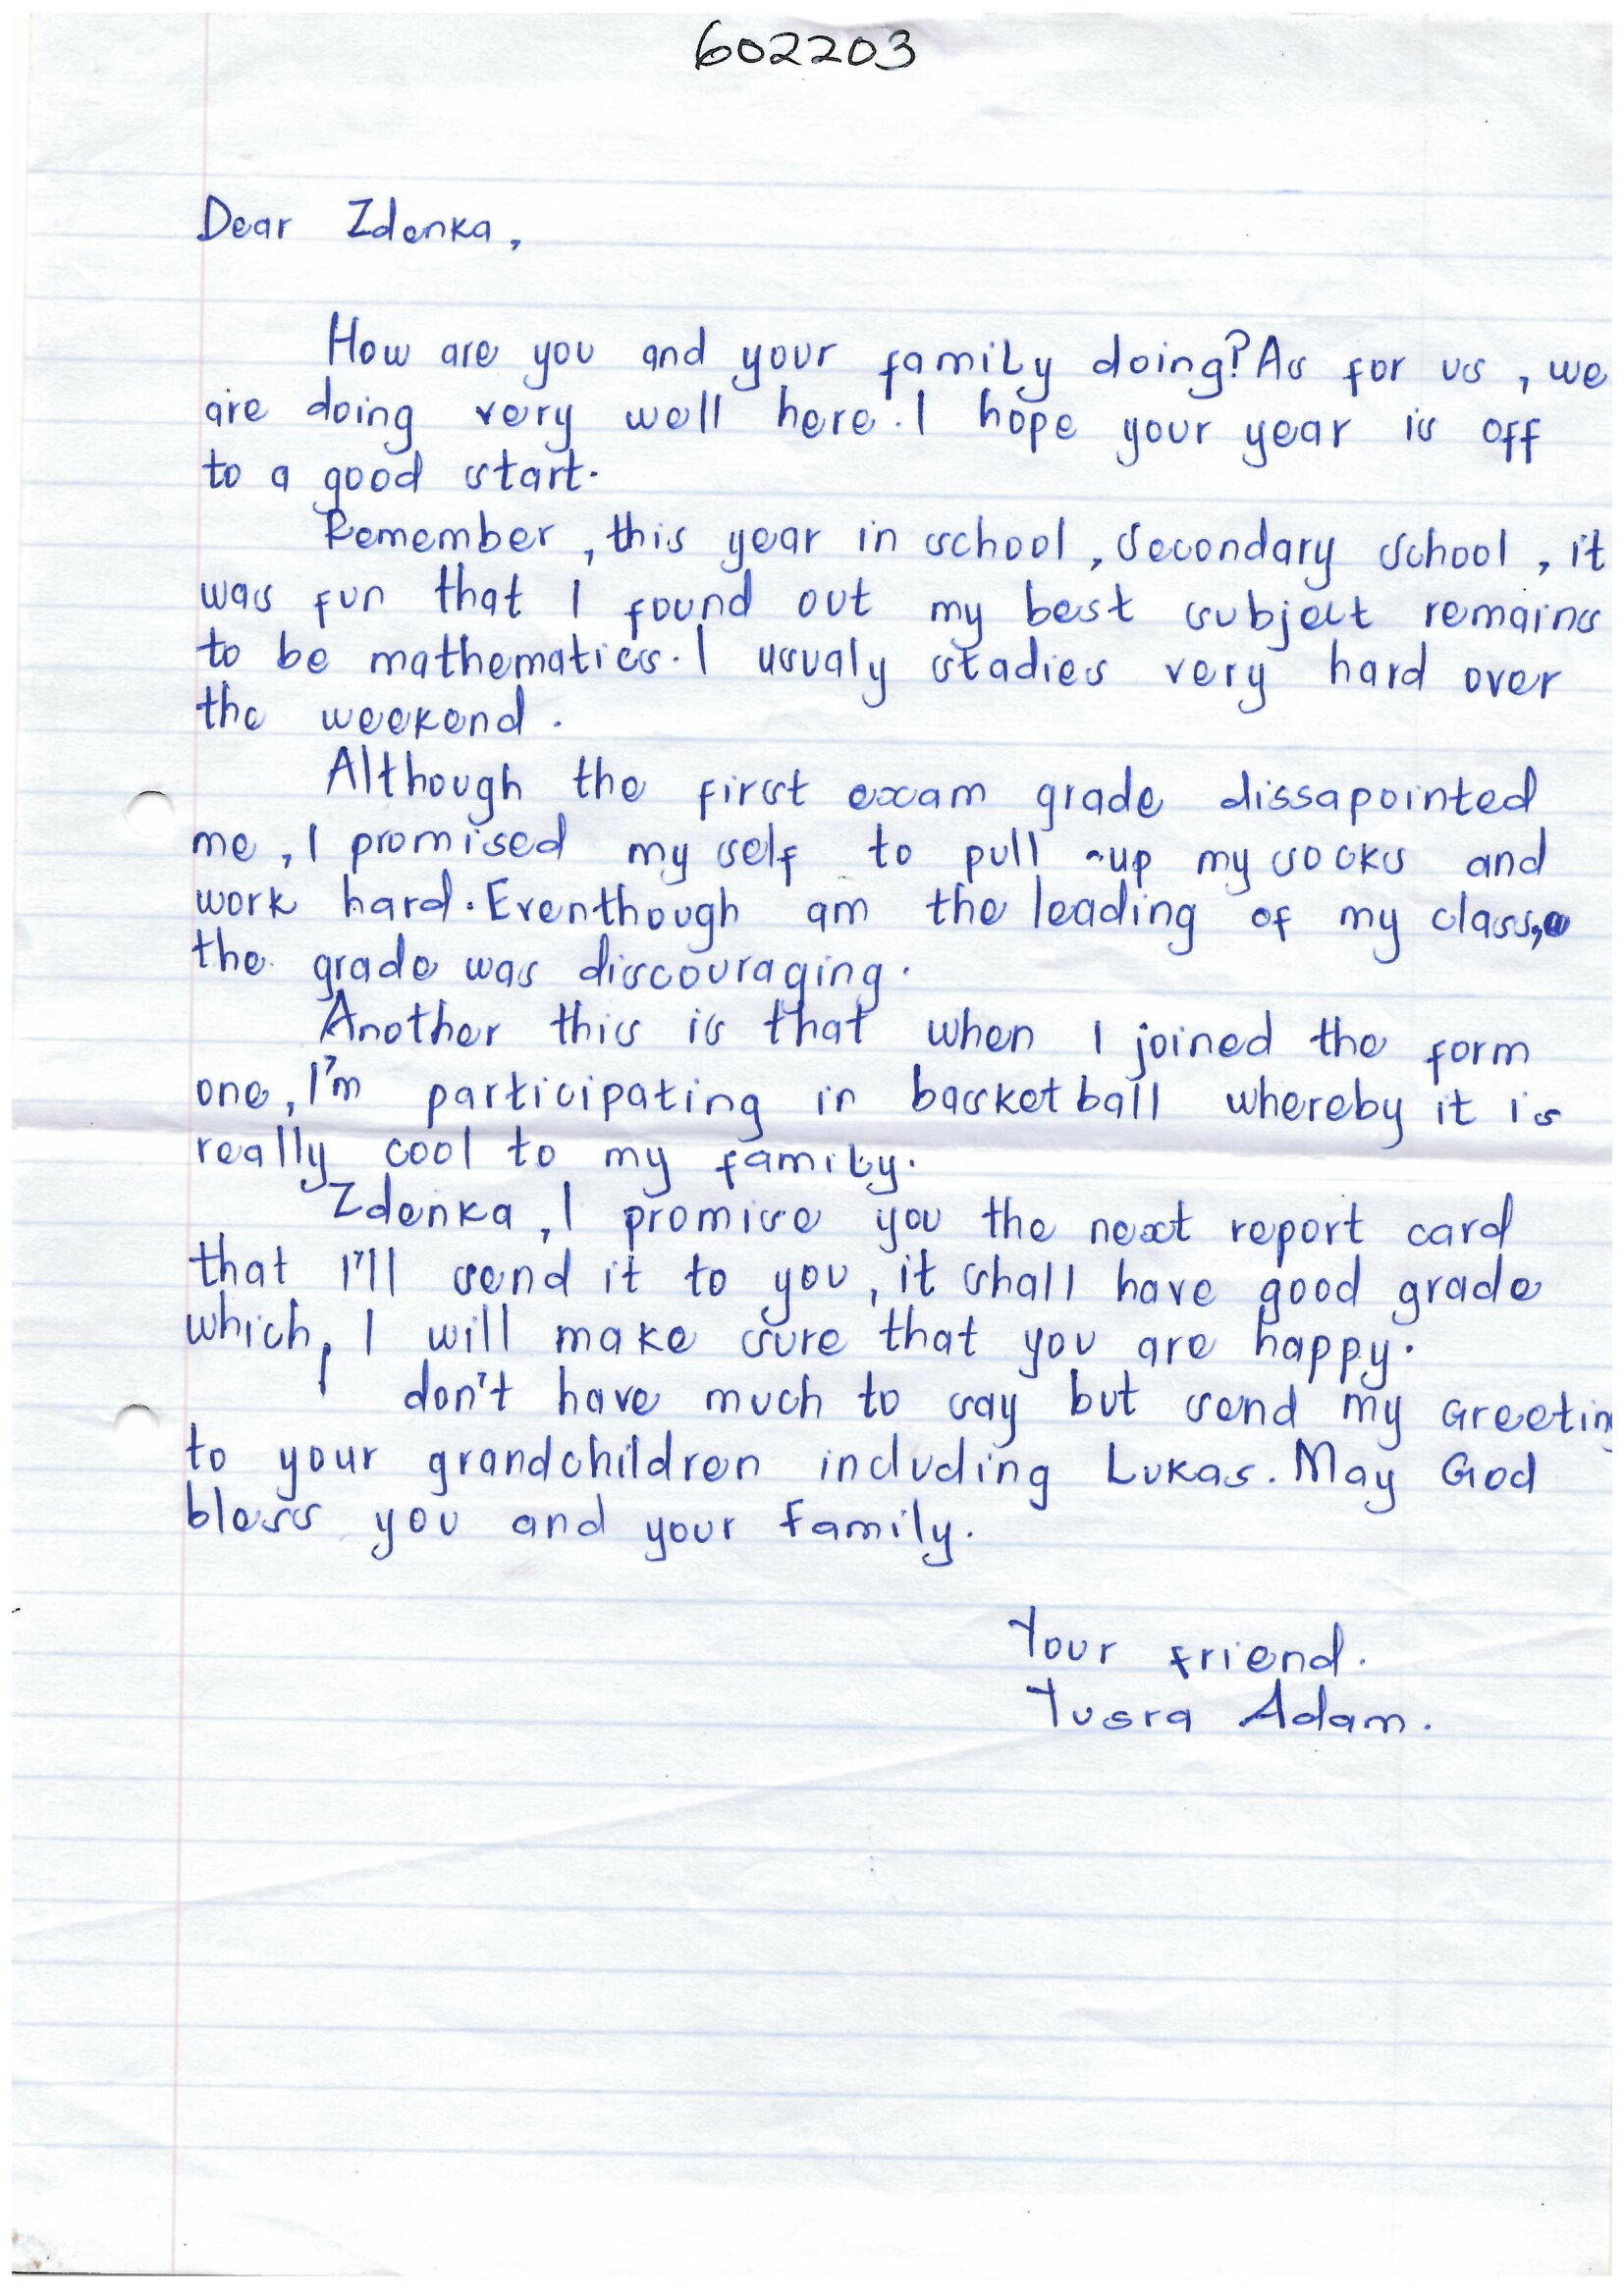 602203
Dear Zdenka,
How are you and your family doing? As for us, we
are doing very well here. I hope your year is off
to a good start.
Remember, this year in school, Secondary school, it
was fun that I found out my best subject remains
to be mathematics. I usualy stadies very hard over
the weekend.
Although the first exam grade dissapointed
me, I promised my self to pull -up my socks and
work hard. Eventhough am the leading of my class,
the grade was discouraging.
Another this is that when I joined the form
one, I'm participating in basketball whereby it is
really cool to my family.
Zdenka, I promise you the next report card
that I'll send it to you, it shall have good grade
which, I will make sure that you are happy.
I don't have much to say but send my Greeting
to your grandchildren including Lukas. May God
bless you and your family.
Your friend.
Yusra Adam.